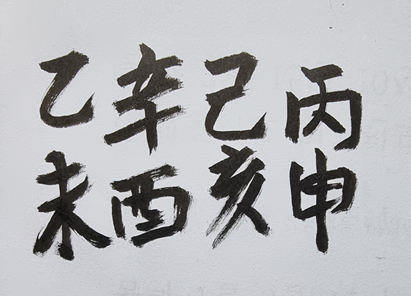 丙申
己亥
辛酉
乙未